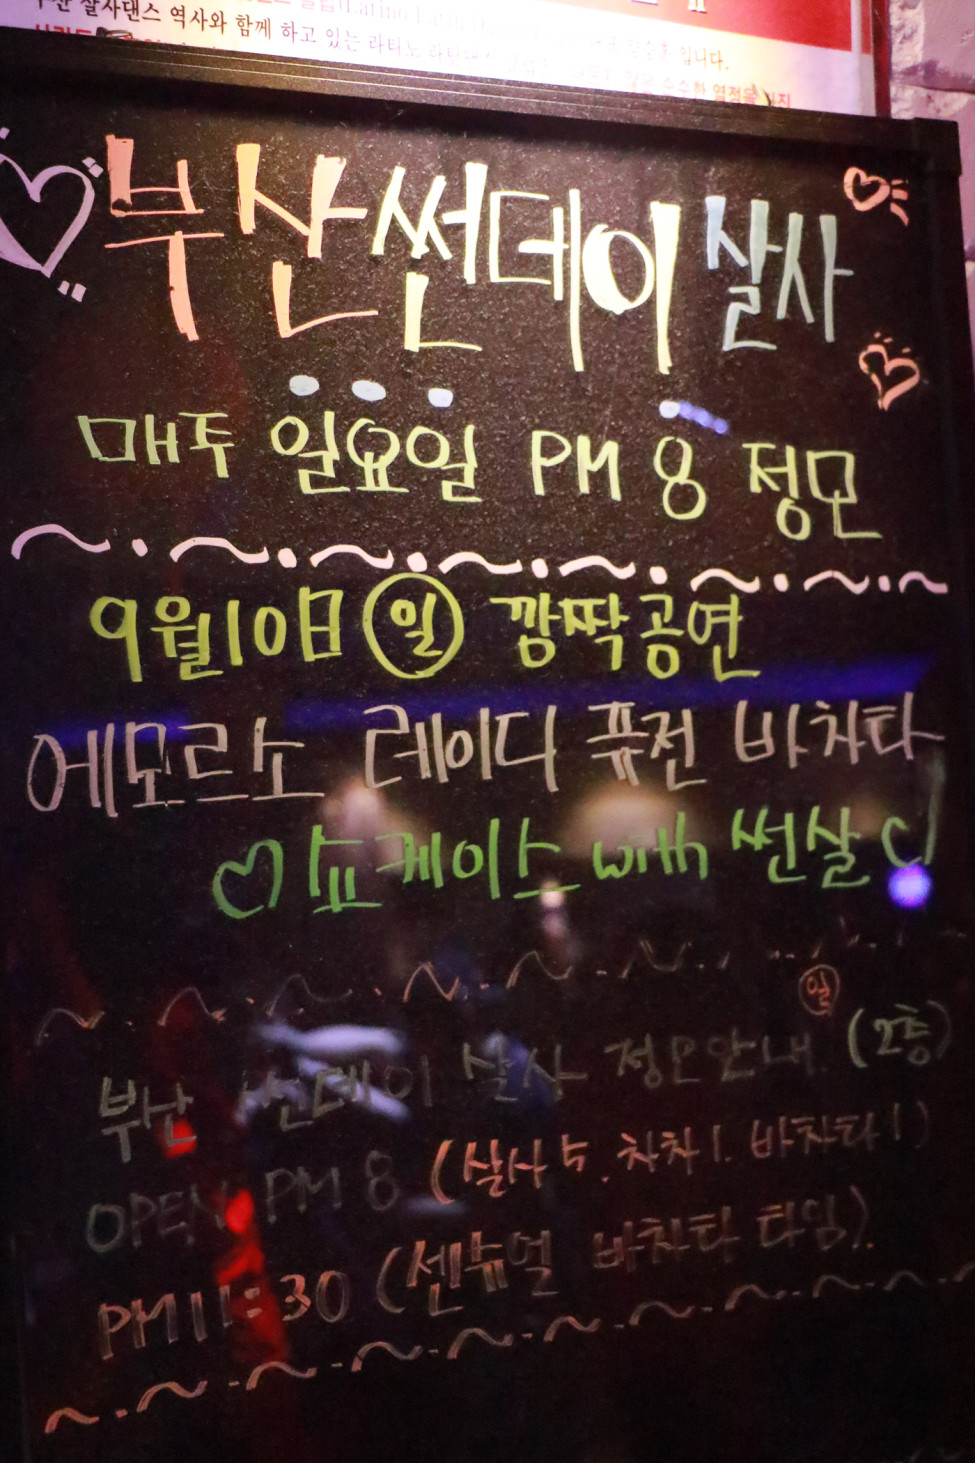 살사댄스 역사와 함께 하고 있는 라티노
입니다.
순수한 열정을
부산 썬데이 살사
매주 일요일 PM 8 정모
9월 10일 (일) 깜짝공연
에모르소 레이디 퓨전 바차타
♡ 쇼케이스 with 썬살 ♡
일
부산 썬데이 살사 정모안내 (2층)
OPEN PM 8 (살사 5. 차차 1. 바차타 1)
PM 11:30 (센슈얼 바차타 타임).